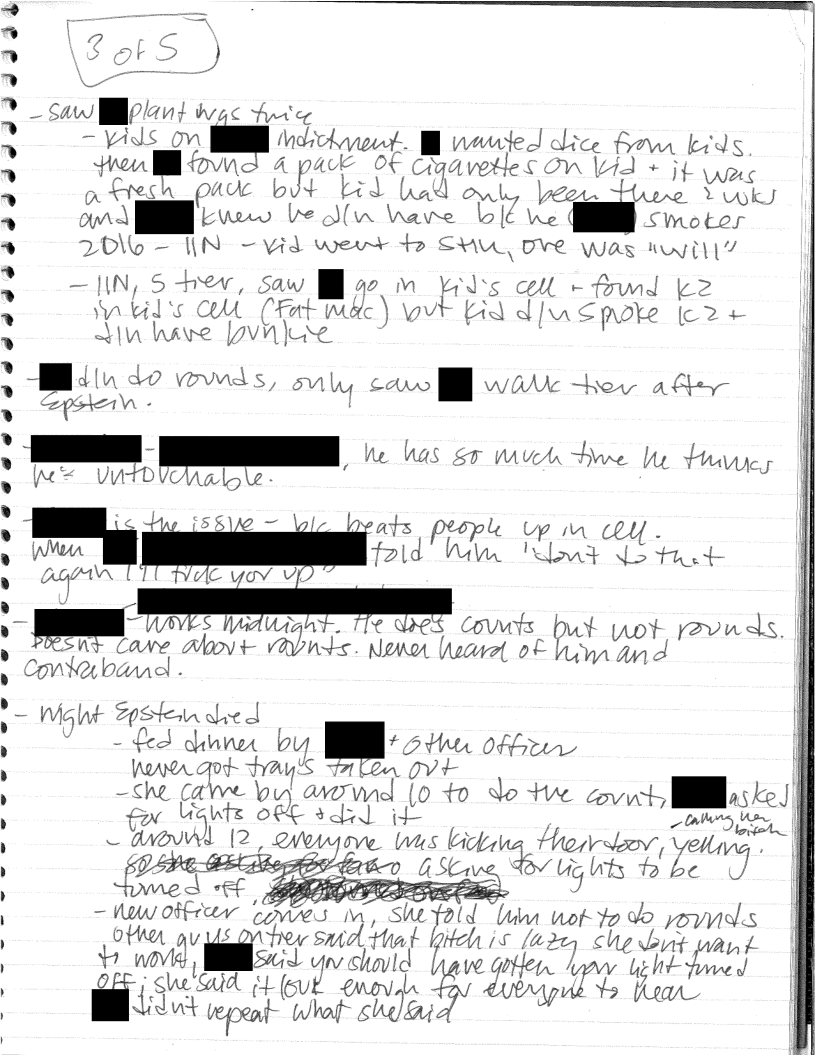 3 of 5
- saw plant wgs twice
- kids on indictment. wanted dice from kids.
then found a pack of cigarettes on kid + it was
a fresh pack but kid had only been there 2 wks
and knew he d/n have b/c he smokes
2016 - 11N - kid went to SHU, one was "Will"
- 11N, 5 tier, saw go in kid's cell + found K2
in kid's cell (Fat Mac) but kid d/n smoke K2 +
d/n have bunkie
- d/n do rounds, only saw walk tier after
Epstein.
- , he has so much time he thinks
he's untouchable.
- is the issue - b/c beats people up in cell.
When told him "don't do that
again I'll fuck you up"
- - works midnight. He does counts but not rounds.
Doesn't care about rounds. Never heard of him and
contraband.
- night Epstein died
- fed dinner by + other officer
never got trays taken out
- she came by around 10 to do the count, asked
for lights off + did it
- calling her
bitch
- around 12, everyone was kicking their door, yelling.
asking for lights to be
turned off,
- new officer comes in, she told him not to do rounds
other guys on tier said that bitch is lazy she don't want
to work, said you should have gotten your light turned
off; she said it loud enough for everyone to hear
didn't repeat what she said